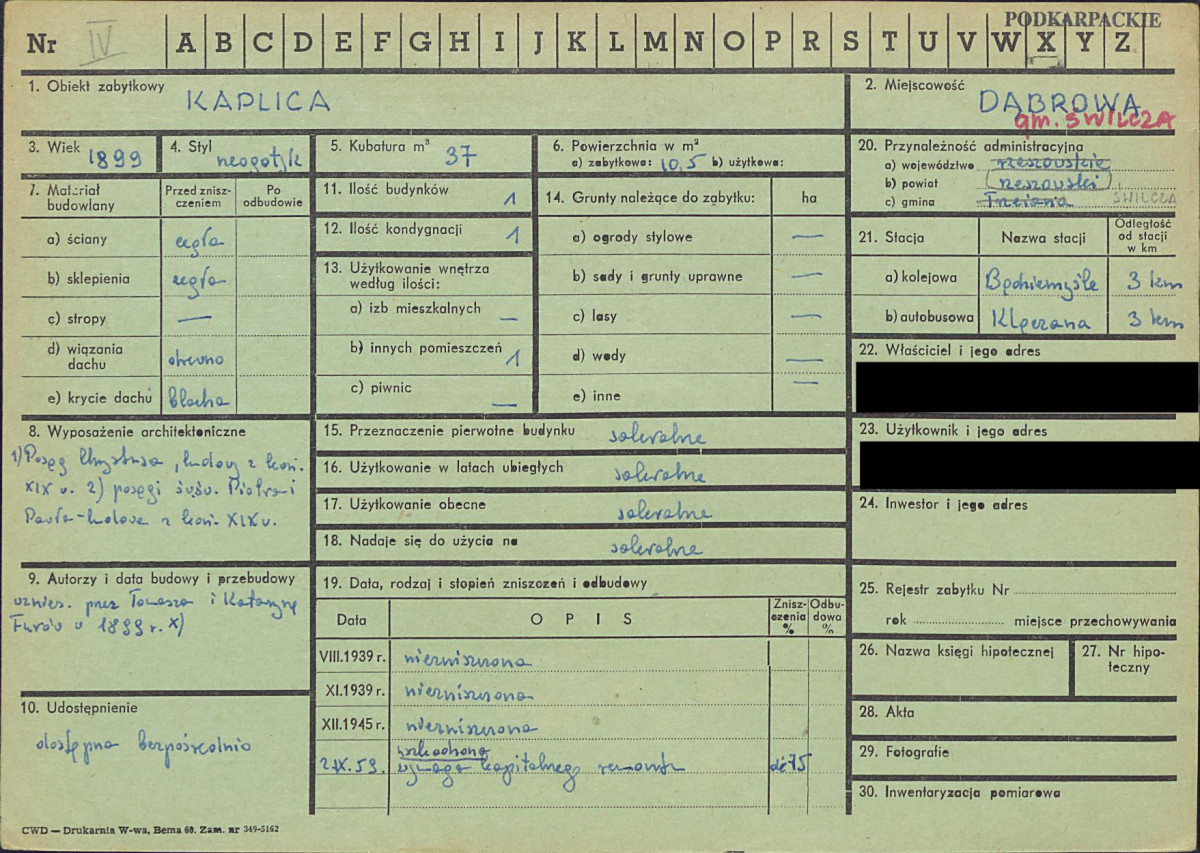 PODKARPACKIE
Nr IV A B C D E F G H I J K L M N O P R S T U V W X Y Z
1. Obiekt zabytkowy KAPLICA
2. Miejscowość DĄBROWA
gm. ŚWILCZA
3. Wiek 1899
4. Styl neogotyk
5. Kubatura m³ 37
6. Powierzchnia w m²
a) zabytkowa: 10,5 b) użytkowa:
20. Przynależność administracyjna
a) województwo rzeszowskie
b) powiat rzeszowski
c) gmina Trzciana ŚWILCZA
7. Materiał budowlany
Przed zniszczeniem
Po odbudowie
a) ściany cegła
b) sklepienia cegła
c) stropy —
d) wiązania dachu drewno
e) krycie dachu blacha
11. Ilość budynków 1
12. Ilość kondygnacji 1
13. Użytkowanie wnętrza
według ilości:
a) izb mieszkalnych —
b) innych pomieszczeń 1
c) piwnic —
14. Grunty należące do zabytku: ha
a) ogrody stylowe —
b) sady i grunty uprawne —
c) lasy —
d) wody —
e) inne —
21. Stacja
Nazwa stacji
Odległość
od stacji
w km
a) kolejowa Będziemyśle 3 km
b) autobusowa Klęczana 3 km
22. Właściciel i jego adres
23. Użytkownik i jego adres
24. Inwestor i jego adres
8. Wyposażenie architektoniczne
1) Posąg Chrystusa, ludowy z koń.
XIX w. 2) posągi śśw. Piotra i
Pawła - ludowe z koń. XIX w.
15. Przeznaczenie pierwotne budynku sakralne
16. Użytkowanie w latach ubiegłych sakralne
17. Użytkowanie obecne sakralne
18. Nadaje się do użycia na sakralne
9. Autorzy i data budowy i przebudowy
wznies. przez Tomasza i Katarzynę
Furów w 1899 r. x)
10. Udostępnienie
dostępna bezpośrednio
19. Data, rodzaj i stopień zniszczeń i odbudowy
Data
OPIS
Zniszczenia %
Odbudowa %
VIII.1939 r. niezniszczona
XI.1939 r. niezniszczona
XII.1945 r. niezniszczona
uszkodzona
2.IX.59. wymaga kapitalnego remontu do 75
25. Rejestr zabytku Nr
rok miejsce przechowywania
26. Nazwa księgi hipotecznej
27. Nr hipoteczny
28. Akta
29. Fotografie
30. Inwentaryzacja pomiarowa
CWD — Drukarnia W-wa, Bema 60. Zam. nr 349-5162